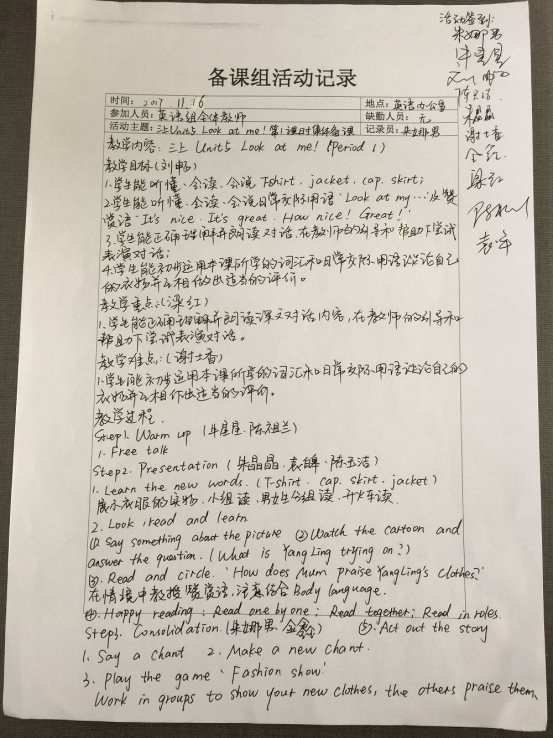 活动签到:
朱娜男
牛星星
陈玉洁
朱晶晶
谢士香
梁红
袁军
备课组活动记录
时间: 2017 . 11. 16
地点: 英语办公室
参加人员: 英语组全体教师
缺勤人员: 无
活动主题: 三上Unit5 Look at me! 第1课时集体备课
记录员: 朱娜男
教学内容: 三上 Unit5 Look at me! (Period 1)
教学目标(刘畅)
1.学生能听懂、会读、会说 T-shirt, jacket, cap, skirt;
2.学生能听懂、会读、会说日常交际用语 'Look at my …' 及赞
赏语 'It's nice. It's great. How nice! Great!'
3.学生能正确理解并朗读对话,在教师的引导和帮助下尝试
表演对话;
4.学生能初步运用本课所学的词汇和日常交际用语谈论自己
的衣物并互相做出适当的评价。
教学重点:(梁红)
1.学生能正确理解并朗读课文对话内容,在教师的引导和
帮助下尝试表演对话。
教学难点:(谢士香)
1.学生能初步运用本课所学的词汇和日常交际用语谈论自己的
衣物并互相作出适当的评价。
教学过程
Step1. Warm up (牛星星、陈祖兰)
1. Free talk
Step2. Presentation (朱晶晶、袁军、陈玉洁)
1. Learn the new words. (T-shirt、cap、skirt、jacket)
展示衣服的实物,小组读,男女生分组读,开火车读.
2. Look, read and learn
① Say something about the picture ② Watch the cartoon and
answer the question. (What is YangLing trying on?)
③. Read and circle. 'How does Mum praise YangLing's clothes?'
在情境中教授赞赏语,注意结合Body language.
④. Happy reading: Read one by one; Read together; Read in roles.
Step3. Consolidation. (朱娜男、) ⑤. Act out the story
1. Say a chant 2. Make a new chant.
3. Play the game 'Fashion show'
Work in groups to show your new clothes, the others praise them.